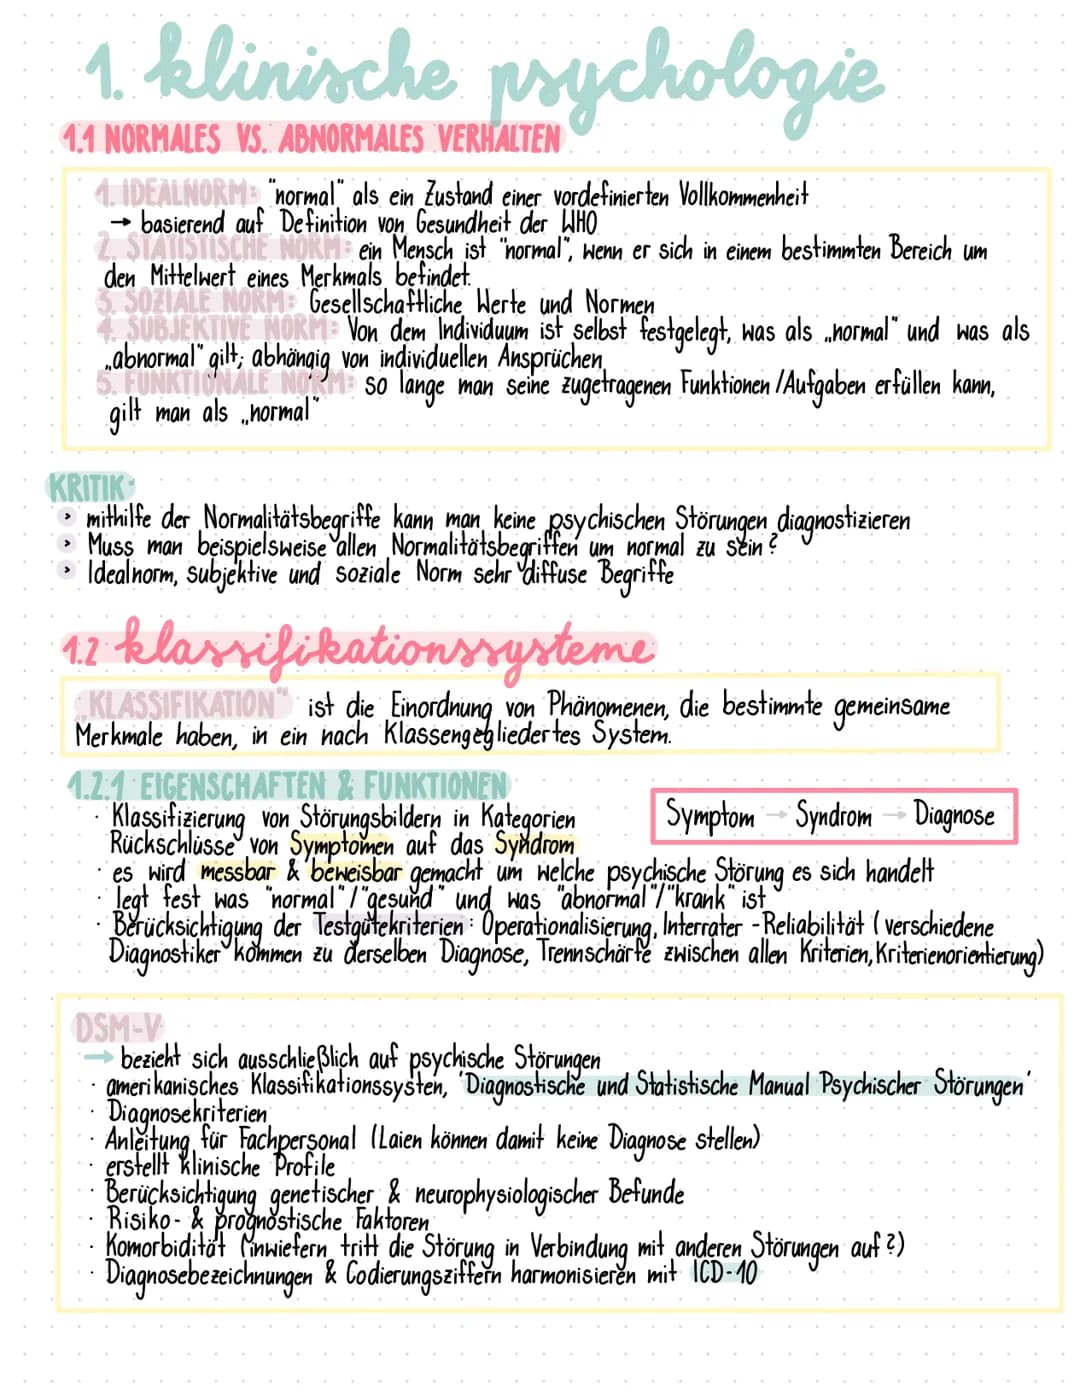 1. klinische psychologie
1.1 NORMALES VS. ABNORMALES VERHALTEN
1. IDEALNORM: "normal" als ein Zustand einer vordefinierten Vollkommenheit
→ basierend auf Definition von Gesundheit der WHO
2. STATISTISCHE NORM: ein Mensch ist "normal", wenn er sich in einem bestimmten Bereich um
den Mittelwert eines Merkmals befindet.
3. SOZIALE NORM: Gesellschaftliche Werte und Normen
4. SUBJEKTIVE NORM: Von dem Individuum ist selbst festgelegt, was als „normal" und was als
„abnormal" gilt; abhängig von individuellen Ansprüchen
5. FUNKTIONALE NORM: so lange man seine zugetragenen Funktionen/Aufgaben erfüllen kann,
gilt man als „normal"
KRITIK:
> mithilfe der Normalitätsbegriffe kann man keine psychischen Störungen diagnostizieren
> Muss man beispielsweise allen Normalitätsbegriffen um normal zu sein?
> Idealnorm, subjektive und soziale Norm sehr diffuse Begriffe
1.2 klassifikationssysteme
„KLASSIFIKATION" ist die Einordnung von Phänomenen, die bestimmte gemeinsame
Merkmale haben, in ein nach Klassengegliedertes System.
1.2.1 EIGENSCHAFTEN & FUNKTIONEN
Symptom → Syndrom → Diagnose
· Klassifizierung von Störungsbildern in Kategorien
Rückschlüsse von Symptomen auf das Syndrom
· es wird messbar & beweisbar gemacht um welche psychische Störung es sich handelt
· legt fest was "normal"/"gesund" und was "abnormal"/"krank" ist
· Berücksichtigung der Testgütekriterien: Operationalisierung, Interrater-Reliabilität (verschiedene
Diagnostiker kommen zu derselben Diagnose, Trennschärfe zwischen allen Kriterien, Kriterienorientierung)
DSM-V
→ bezieht sich ausschließlich auf psychische Störungen
· amerikanisches Klassifikationssysten, 'Diagnostische und Statistische Manual Psychischer Störungen'
· Diagnosekriterien
· Anleitung für Fachpersonal (Laien können damit keine Diagnose stellen)
· erstellt klinische Profile
· Berücksichtigung genetischer & neurophysiologischer Befunde
· Risiko- & prognostische Faktoren
· Komorbidität (inwiefern tritt die Störung in Verbindung mit anderen Störungen auf?)
· Diagnosebezeichnungen & Codierungsziffern harmonisieren mit ICD-10